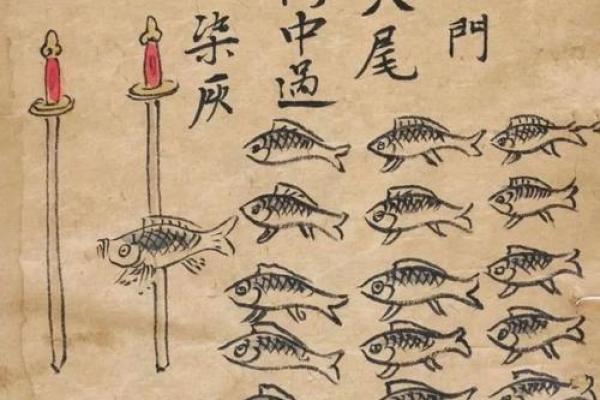 門
尾
中過
柒灰